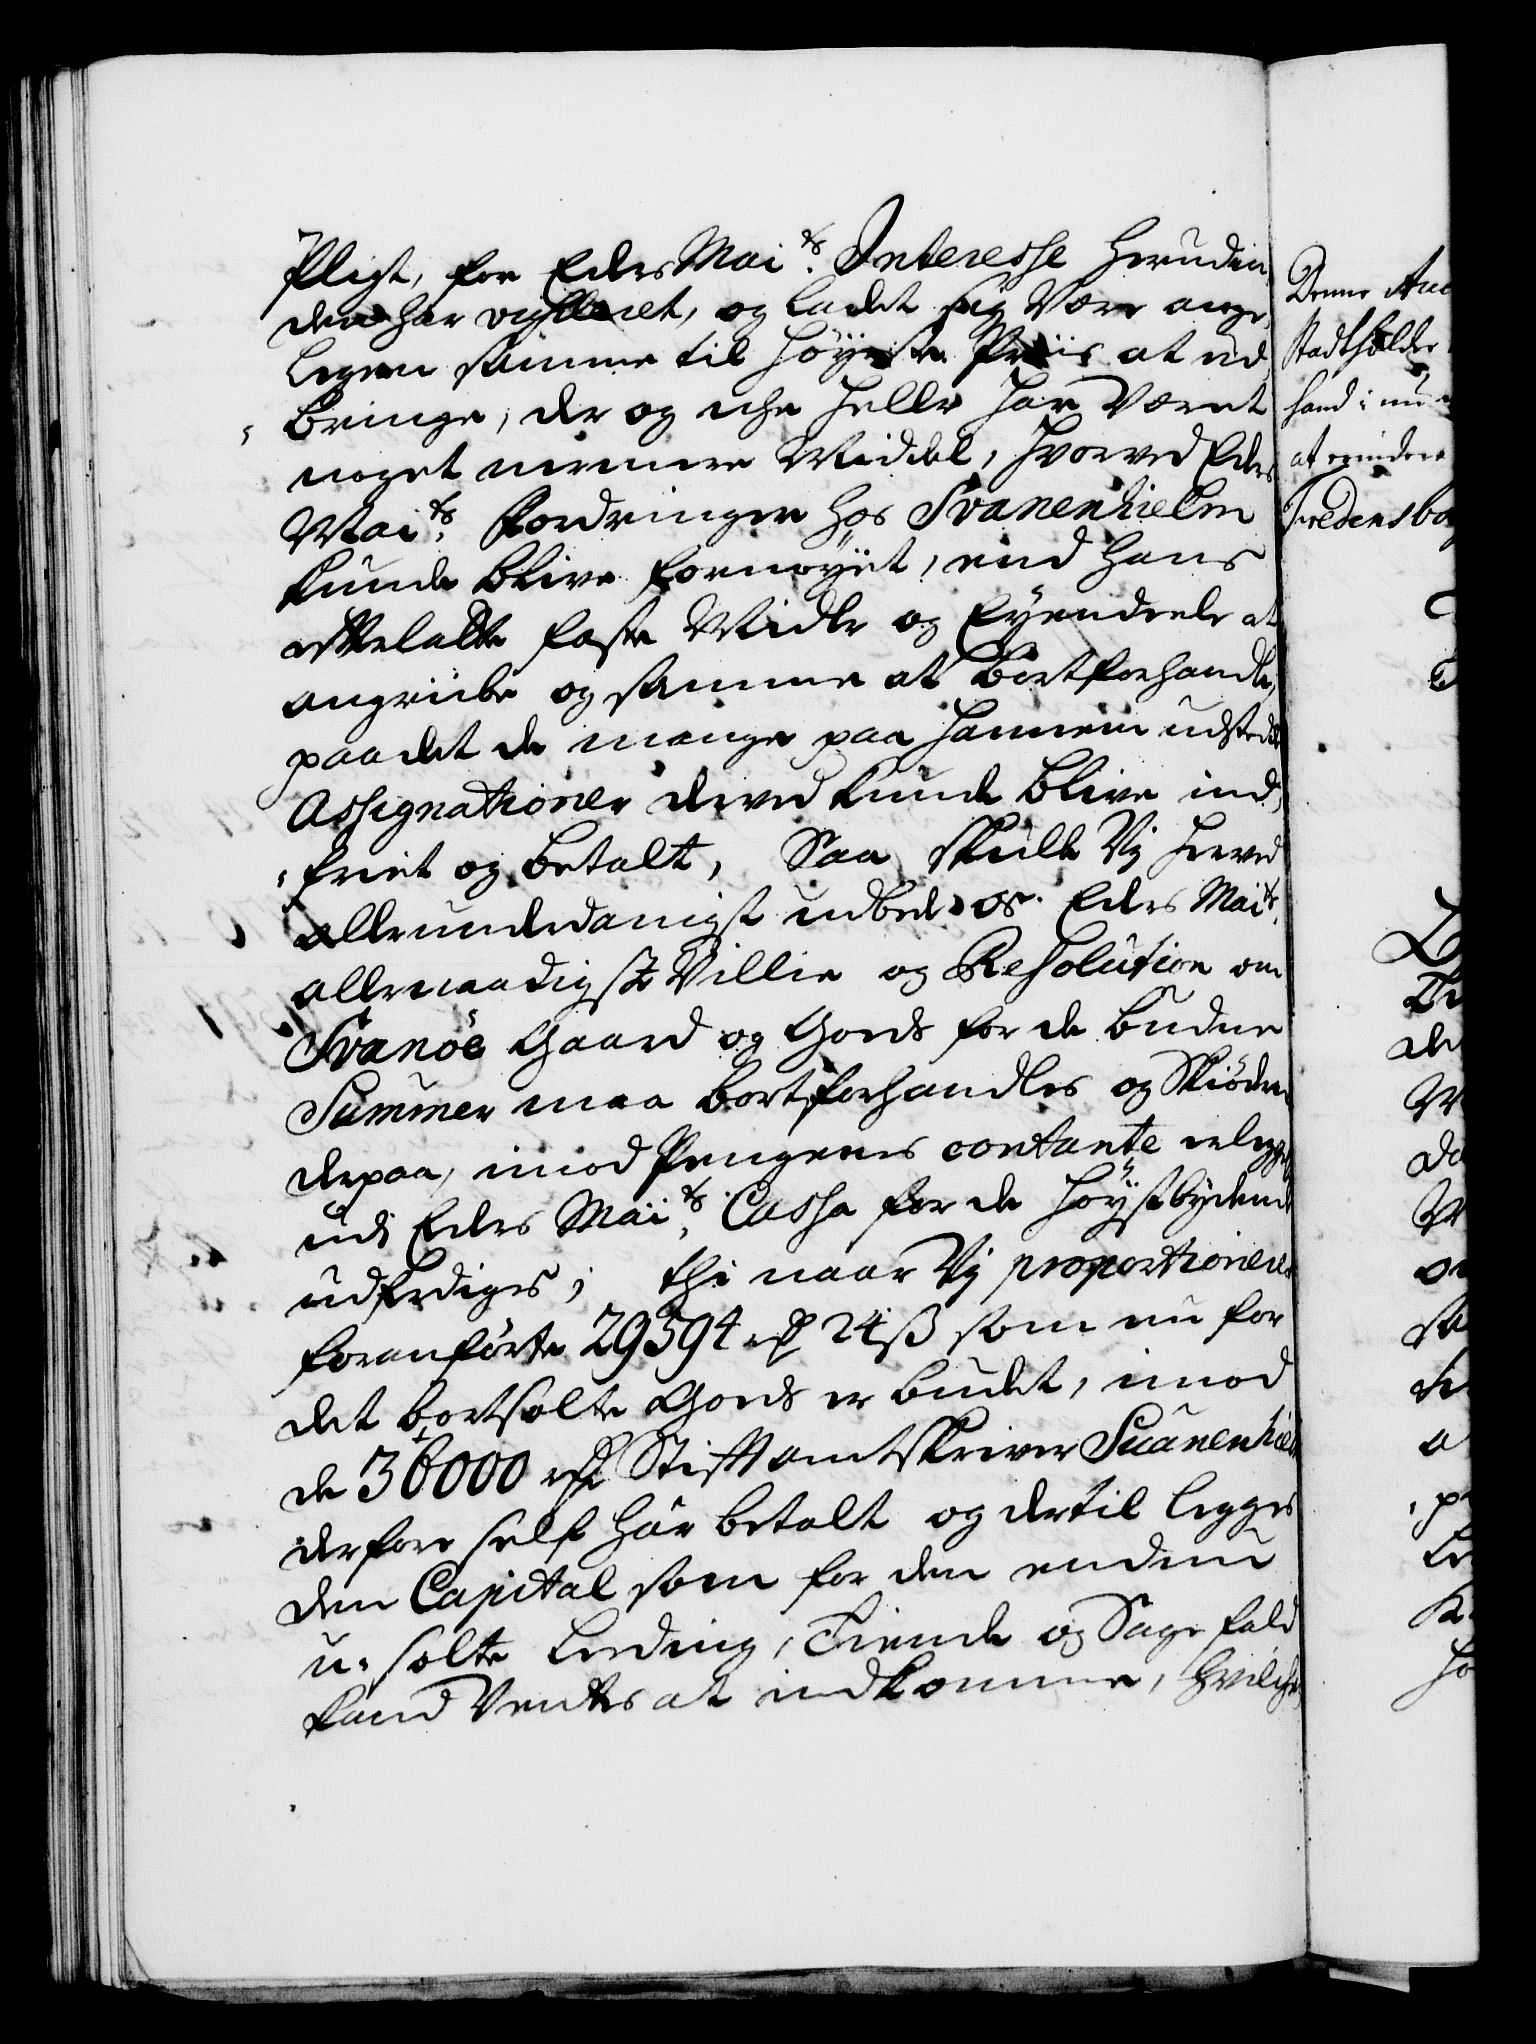 Pligt, for Eders Maits. Interesse herudin-
den har vigileret, og ladet sig være ange-
legen samme til høyeste Priis at ud-
bringe, der og iche heller har Været
noget nermere Middel, hvorved Eders
Maits. Fordringer hos Svanenhielm
kunde blive fornøyet, end hans
efterladte faste Midler og Eyendeele at
angribe og samme at bortforhandle,
paa det de mange paa hannem udstedte
Assignationer derved kunde blive ind-
friet og betalt, Saa skulle Vj herved
allerunderdanigst udbede os Eders Maits.
allernaadigste Villie og Resolution om
Svanöe Gaard og Gods for de budne
Summer maa bortforhandles og Skiöder
derpaa, imod Pengenes contante erleggelse
udj Eders Maits. Cassa for de høystbydende
udferdiges; thi naar Vj proportionerer
foranførte 29594 rdr 24 ß som nu for
det bortsolte Gods er budet, imod
de 36000 rdr Stiftamtskriver Suanenhielm
derfore self har betalt og dertil legges
den Capital som for den endnu
u-solte Leding, Tiende og Sagefald
kand Ventes at indkomme, hvilche
Denne
Stadtholder
hand i nu
at erindre
Fredensbo